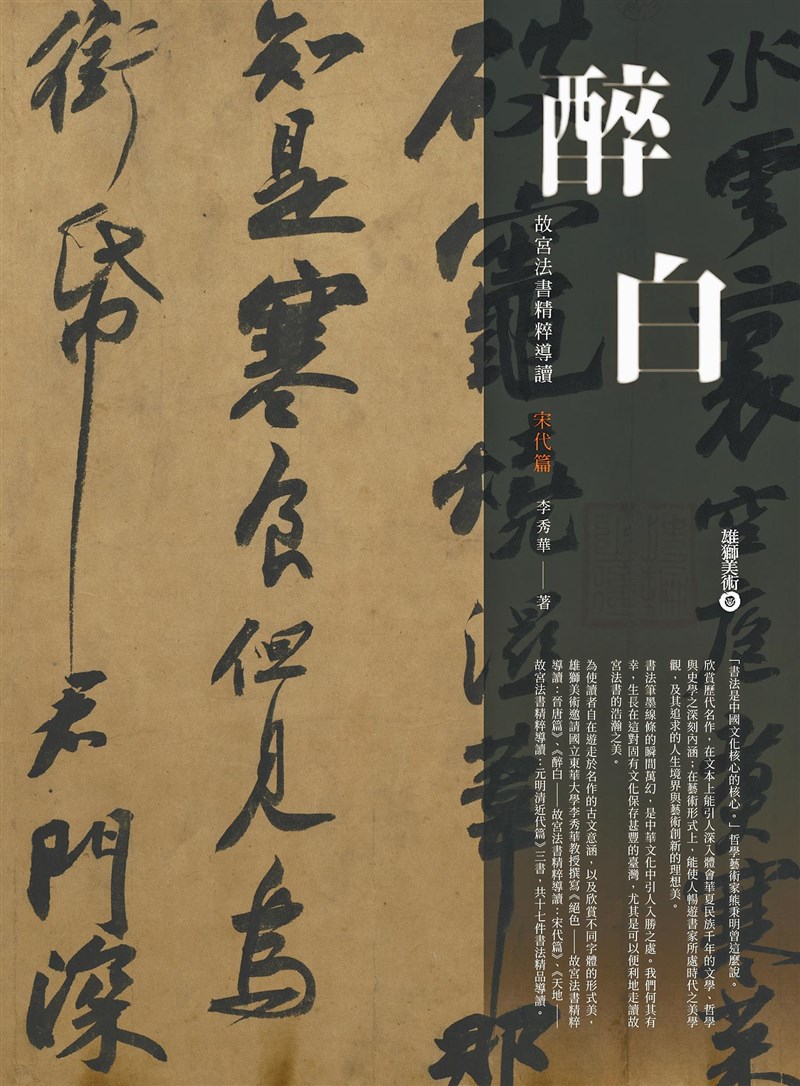 醉白
故宮法書精粹導讀 宋代篇
李秀華——著
雄獅美術
「書法是中國文化核心的核心。」哲學藝術家熊秉明曾這麼說。
欣賞歷代名作，在文本上能引人深入體會華夏民族千年的文學、哲學
與史學之深刻內涵；在藝術形式上，能使人暢遊書家所處時代之美學
觀，及其追求的人生境界與藝術創新的理想美。
書法筆墨線條的瞬間萬幻，是中華文化中引人入勝之處。我們何其有
幸，生長在這對固有文化保存甚豐的臺灣，尤其是可以便利地走讀故
宮法書的浩瀚之美。
為使讀者自在遊走於名作的古文意涵，以及欣賞不同字體的形式美，
雄獅美術邀請國立東華大學李秀華教授撰寫《絕色——故宮法書精粹
導讀：晉唐篇》、《醉白——故宮法書精粹導讀：宋代篇》、《天地——
故宮法書精粹導讀：元明清近代篇》三書，共十七件書法精品導讀。
水雲裏空庖煮寒菜
破竈燒溼葦那
知是寒食但見烏
銜帋君門深